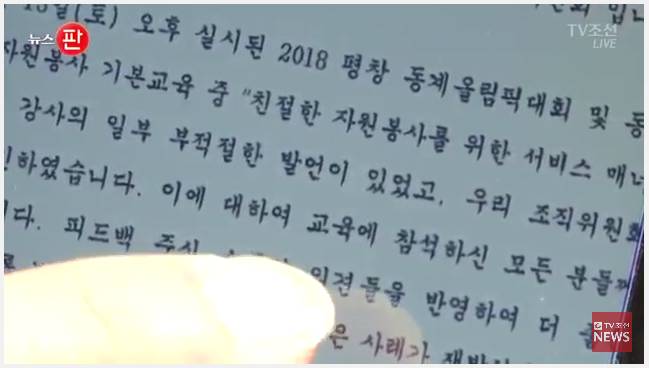 뉴스 판
TV조선
LIVE
오후 실시된 2018 평창 동계올림픽대회 및
자원봉사 기본교육 중 "친절한 자원봉사를 위한 서비스
강사의 일부 부적절한 발언이 있었고, 우리 조직위원회
하였습니다. 이에 대하여 교육에 참석하신 모든 분들
피드백 주신 의견들을 반영하여 더
사례가
TV조선
NEWS